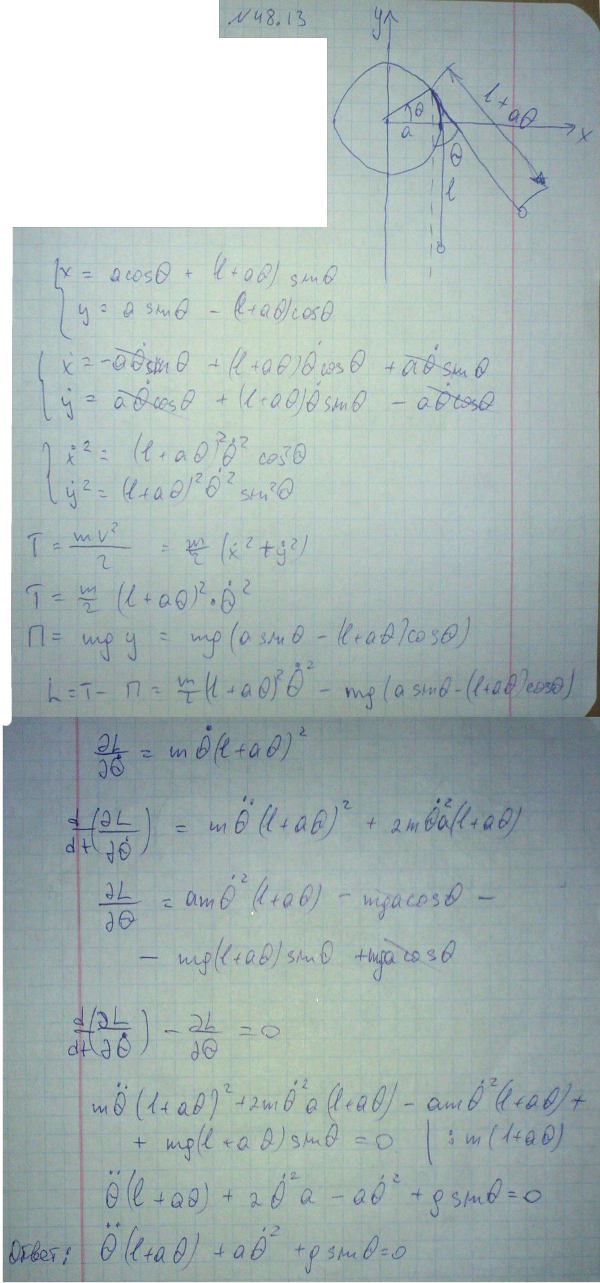 №48.13
y
l + aθ
θ
a
x
θ
l
{x = a cosθ + (l+aθ) sinθ
{y = a sinθ - (l+aθ) cosθ
{ẋ = -aθ̇ sinθ + (l+aθ)θ̇ cosθ + aθ̇ sinθ
{ẏ = aθ̇ cosθ + (l+aθ)θ̇ sinθ - aθ̇ cosθ
{ẋ² = (l+aθ)²θ̇² cos²θ
{ẏ² = (l+aθ)²θ̇² sin²θ
T = mv²/2 = m/2 (ẋ²+ẏ²)
T = m/2 (l+aθ)²·θ̇²
П = mgy = mg(a sinθ - (l+aθ)cosθ)
L = T - П = m/2 (l+aθ)²θ̇² - mg(a sinθ - (l+aθ)cosθ)
∂L/∂θ̇ = mθ̇(l+aθ)²
d/dt(∂L/∂θ̇) = mθ̈(l+aθ)² + 2mθ̇²a(l+aθ)
∂L/∂θ = amθ̇²(l+aθ) - mga cosθ -
- mg(l+aθ) sinθ + mga cosθ
d/dt(∂L/∂θ̇) - ∂L/∂θ = 0
mθ̈(l+aθ)² + 2mθ̇²a(l+aθ) - amθ̇²(l+aθ) +
+ mg(l+aθ) sinθ = 0 | : m(l+aθ)
θ̈(l+aθ) + 2θ̇²a - aθ̇² + g sinθ = 0
Ответ: θ̈(l+aθ) + aθ̇² + g sinθ = 0